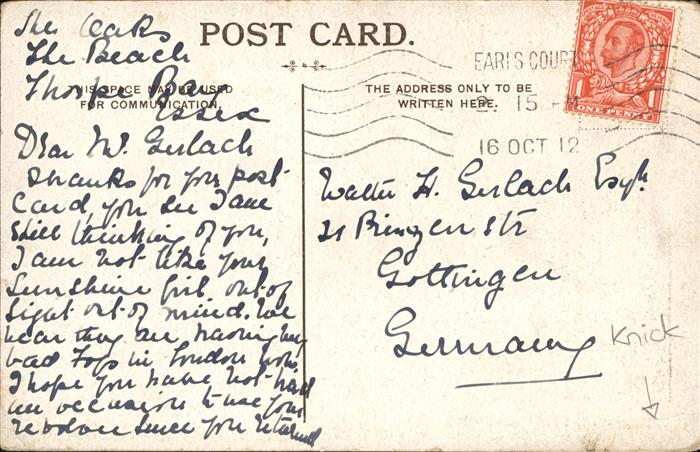 The Oaks
The Beach
Thorpe Bay
Essex
POST CARD.
THIS SPACE MAY BE USED
FOR COMMUNICATION.
Dear Mr. Gerlach
Thanks for your post-
card, you see I am
still thinking of you,
I am not like your
Sunshine Girl out of
sight out of mind. We
hear they are having very
bad Fogs in London now.
I hope you have not had
an occasion to use your
revolver since you returned
THE ADDRESS ONLY TO BE
WRITTEN HERE.
EARLS COURT
2. 15 - M
16 OCT 12
POSTAGE REVENUE
1 1
ONE PENNY
Walter H. Gerlach Esqr.
Str
Gottingen
Germany
Knick